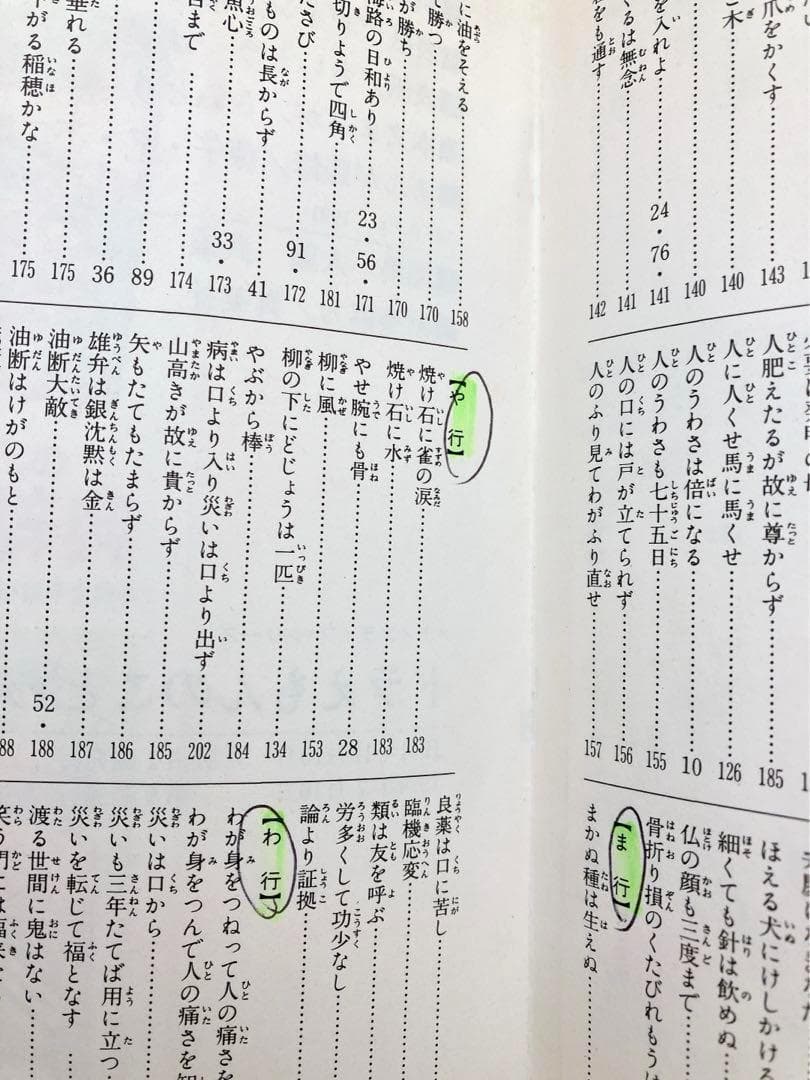 爪をかくす……143
木……140
……140
を入れよ……24・76・141
くるは無念……141
をも通す……142
人肥えたるが故に尊からず……185
人に人くせ馬に馬くせ……126
人のうわさは倍になる……10
人のうわさも七十五日……155
人の口には戸が立てられず……156
人のふり見てわがふり直せ……157
ほえる犬にけしかける
細くても針は飲めぬ
仏の顔も三度まで
骨折り損のくたびれもうけ
【ま行】
まかぬ種は生えぬ
に油をそえる……158
て勝つ……170
が勝ち……170
海路の日和あり……23・56・171
切りようで四角……181
さび……91・172
ものは長からず……41
魚心……33・173
まで……174
……89
……36
垂れる……175
がる稲穂かな……175
【や行】
焼け石に雀の涙……183
焼け石に水……183
やせ腕にも骨……28
柳に風……153
柳の下にどじょうは一匹……134
やぶから棒……184
病は口より入り災いは口より出ず……202
山高きが故に貴からず……185
矢もたてもたまらず……186
雄弁は銀沈黙は金……187
油断大敵……52・188
油断はけがのもと……188
良薬は口に苦し
臨機応変
類は友を呼ぶ
労多くして功少なし
論より証拠
【わ行】
わが身をつねって人の痛さを
わが身をつんで人の痛さを知
災いは口から
災いも三年たてば用に立つ
災いを転じて福となす
渡る世間に鬼はない
笑う門には福来